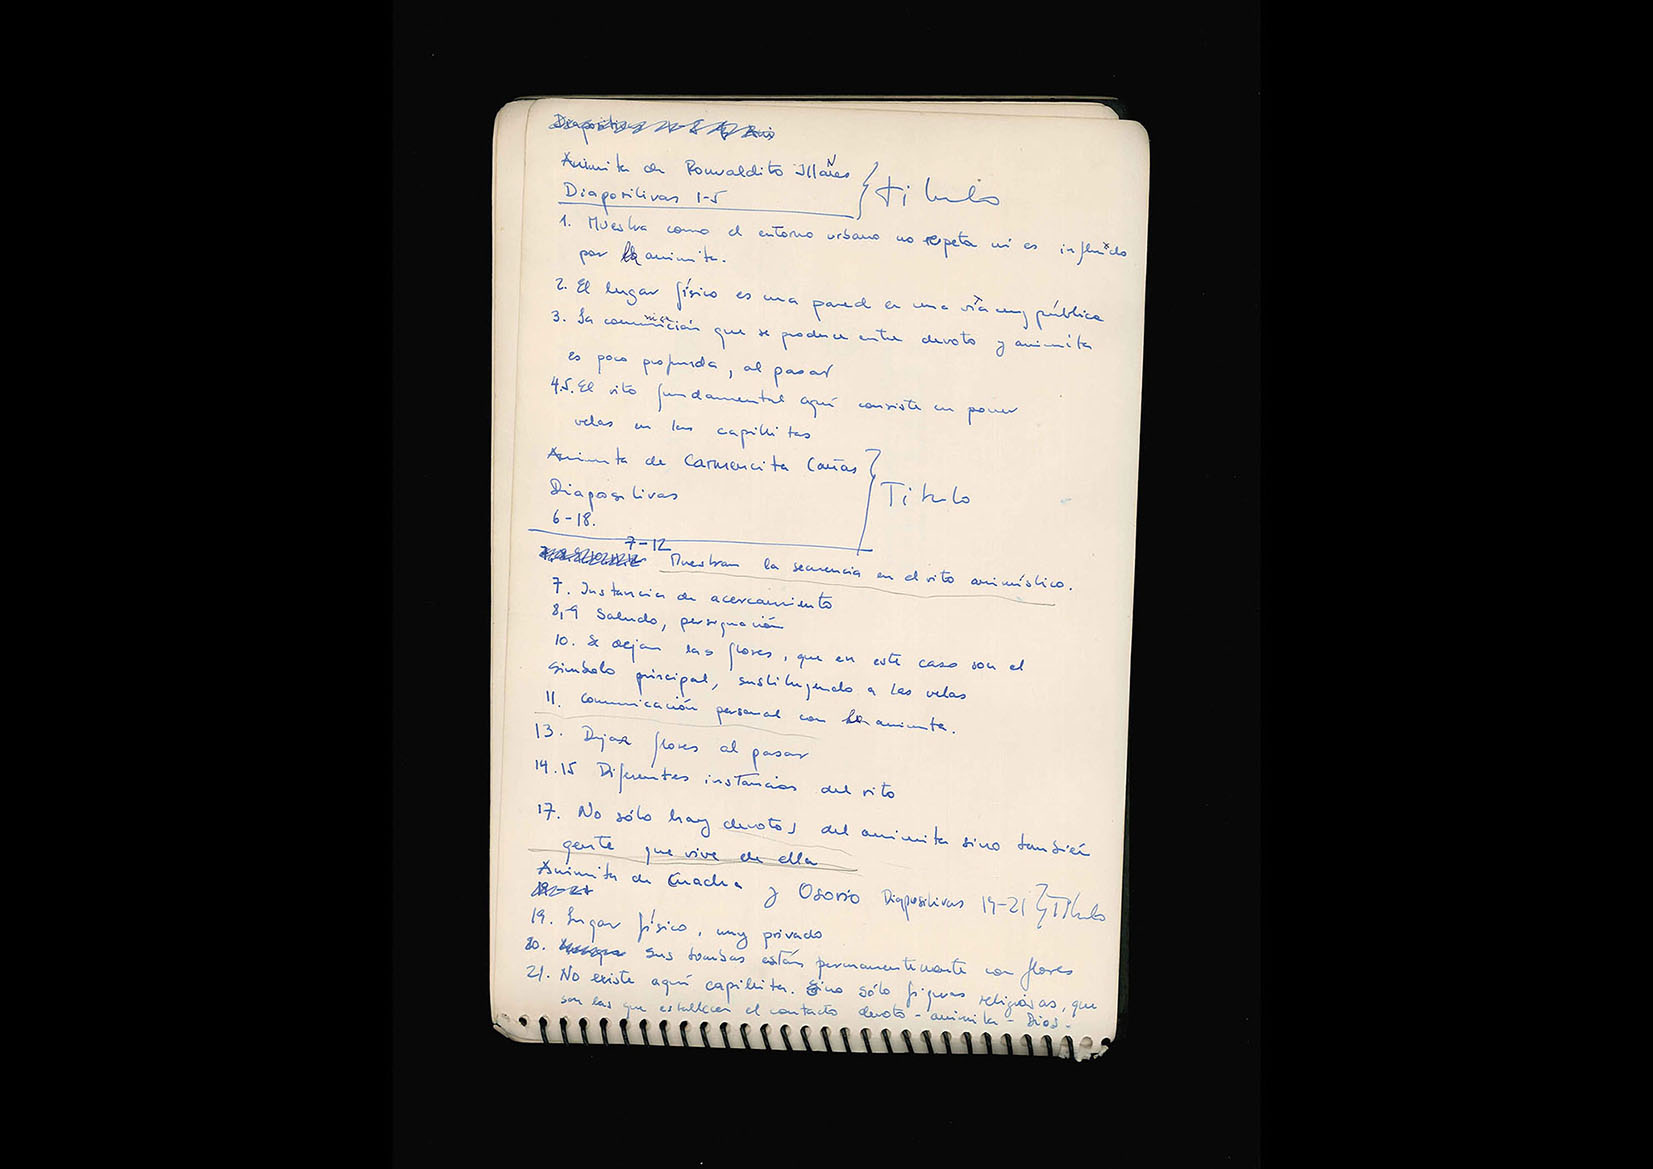 Animita de Romualdito Illañes } titulo
Diapositivas 1-5
1. Muestra como el entorno urbano no respeta ni es influido
por la animita.
2. El lugar físico es una pared en una vía muy pública
3. La comunicación que se produce entre devoto y animita
es poco profunda, al pasar
4.5. El rito fundamental aquí consiste en poner
velas en las capillitas
Animita de Carmencita Cañas } Titulo
Diapositivas
6-18.
7-12 Muestran la secuencia en el rito animístico.
7. Instancia de acercamiento
8,9 Saludo, persignación
10. Se dejan las flores, que en este caso son el
símbolo principal, sustituyendo a las velas
11. Comunicación personal con la animita.
13. Dejar flores al pasar
14.15 Diferentes instancias del rito
17. No sólo hay devotos del animita sino también
gente que vive de ella
Animita de Cuadra y Osorio Diapositivas 19-21 } Titulo
19. Lugar físico, muy privado
20. Sus tumbas están permanentemente con flores
21. No existe aquí capillita. Sino sólo figuras religiosas, que
son las que establecen el contacto devoto - animita - Dios.